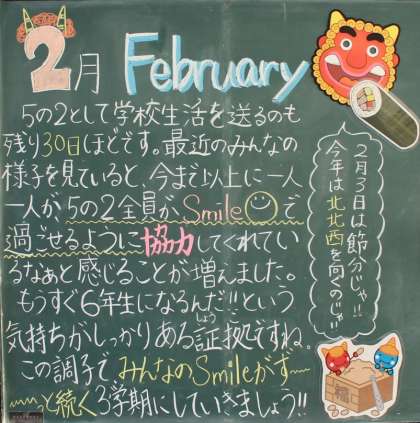 2月 February
5の2として学校生活を送るのも
残り30日ほどです。最近のみんなの
様子を見ていると、今まで以上に一人
一人が5の2全員がSmileで
過ごせるように協力してくれてい
るなぁと感じることが増えました。
もうすぐ6年生になるんだ!!という
気持ちがしっかりある証拠ですね。
しょうこ
この調子でみんなのSmileがず〜
〜っと続く3学期にしていきましょう!!
2月3日は節分じゃ!!
今年は北北西を向くのじゃ!!
福